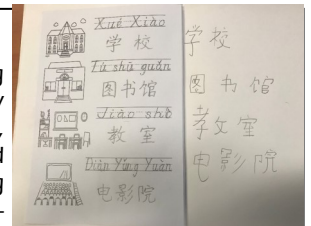 Xué Xiào
学校
Tú shū guǎn
图书馆
Jiào shì
教室
Diàn Yǐng Yuàn
电影院
学校
图书馆
教室
电影院